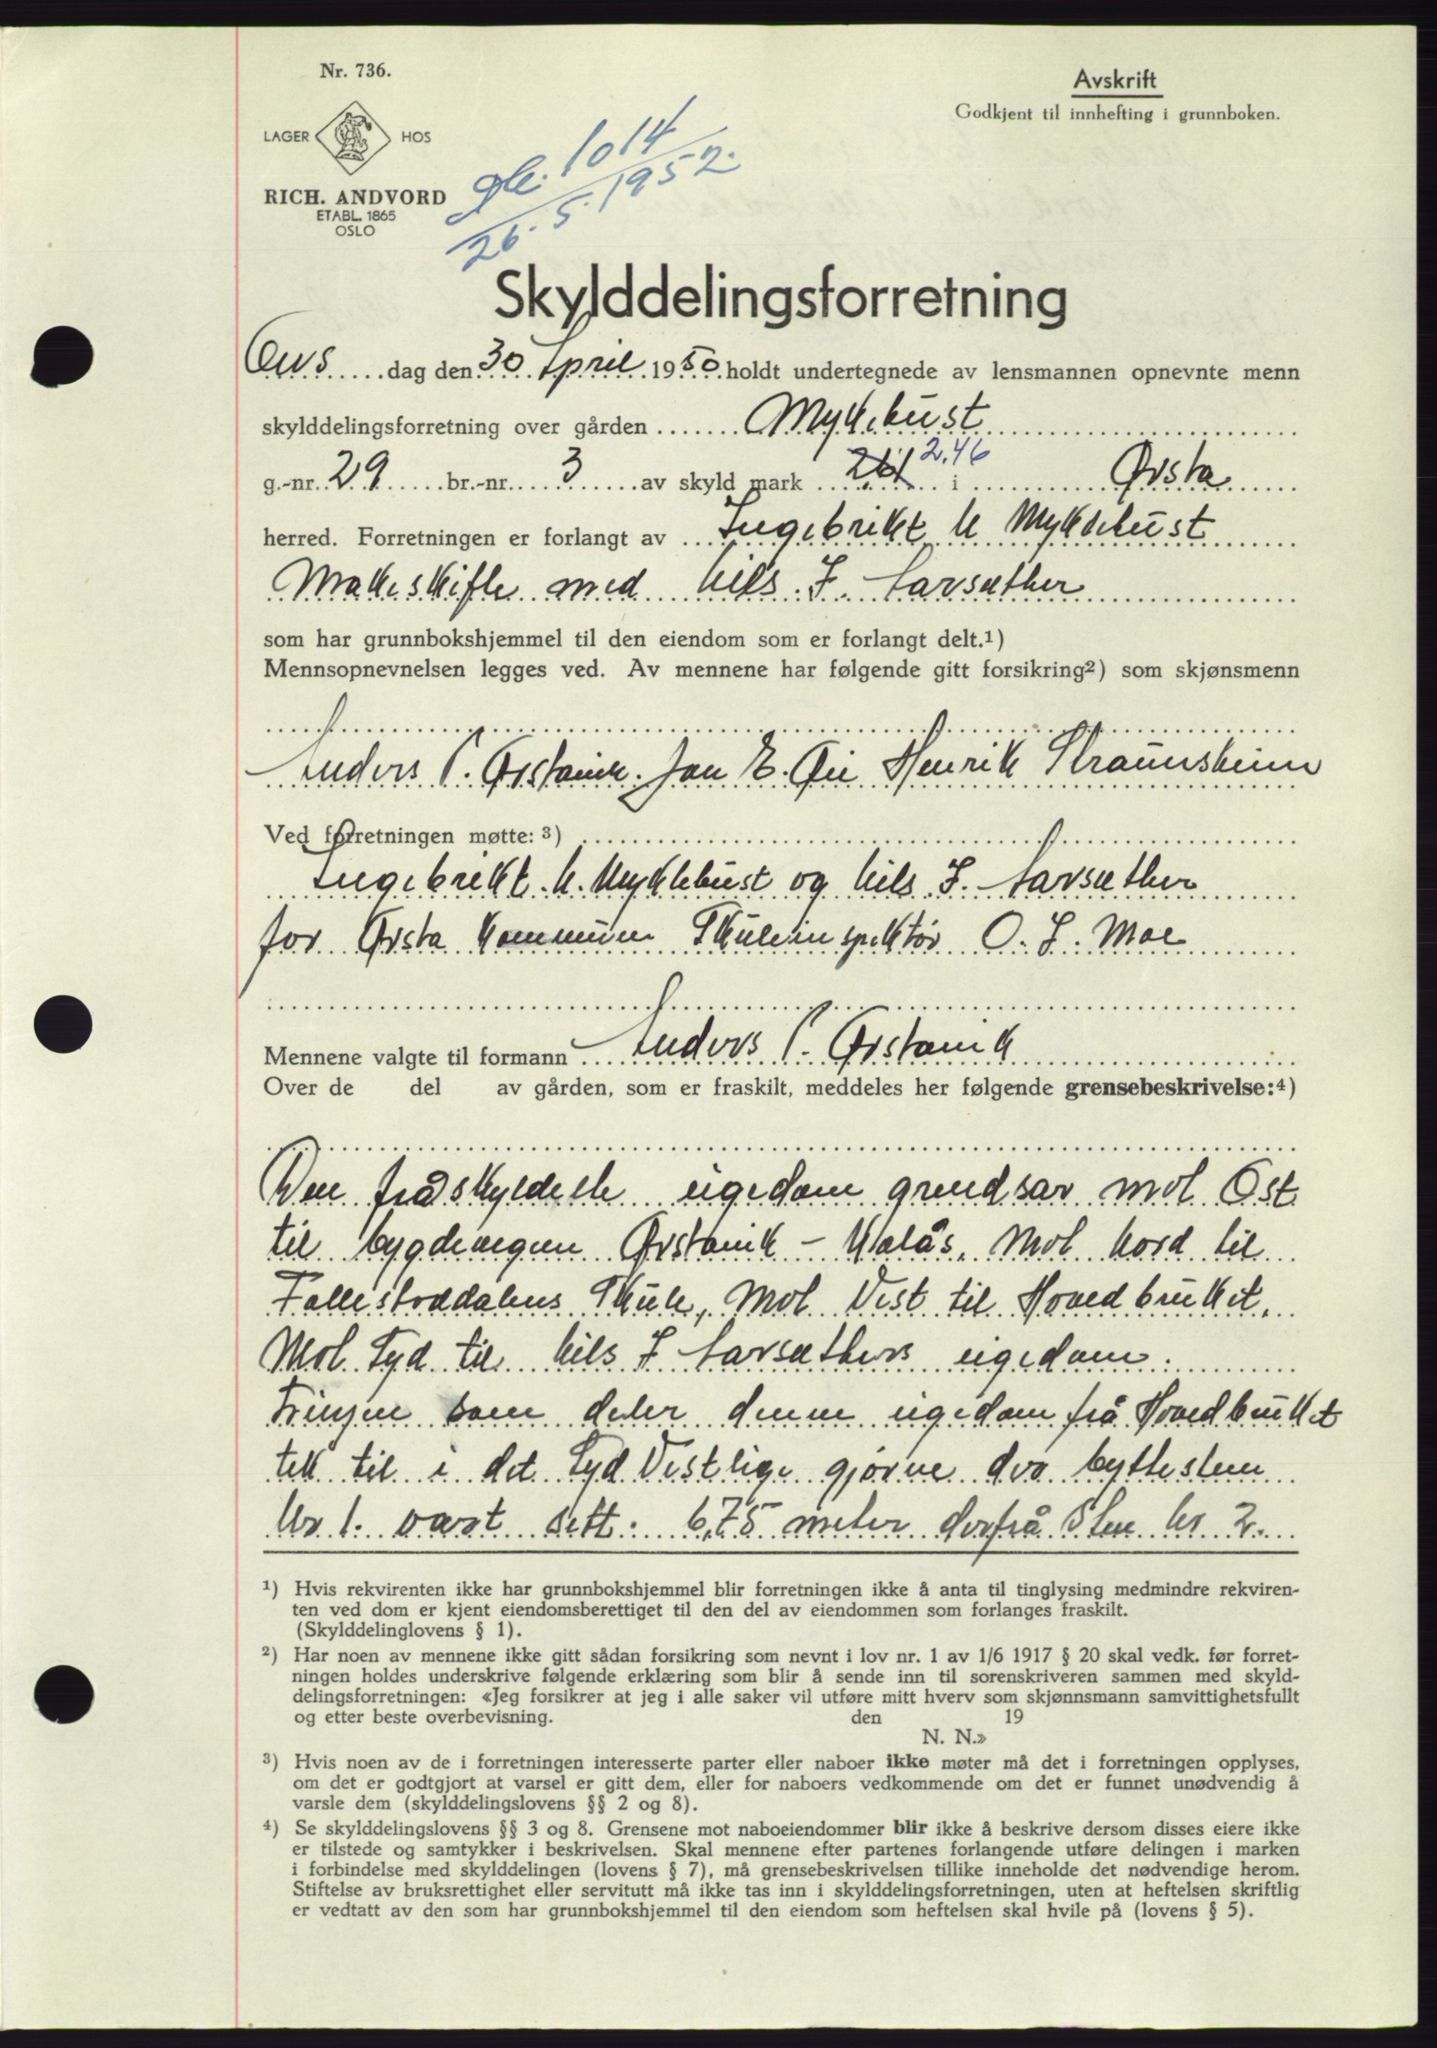 Nr. 736.
Avskrift
Godkjent til innhefting i grunnboken.
LAGER HOS
RICH. ANDVORD
ETABL. 1865
OSLO
1014
26.5.1952.
Skylddelingsforretning
Ons dag den 30 April 1950 holdt undertegnede av lensmannen opnevnte menn
skylddelingsforretning over gården Myklebust
g.-nr. 29 br.-nr. 3 av skyld mark 2,61 2.46 i Ørsta
herred. Forretningen er forlangt av Ingebrikt N Myklebust
Makeskifte med Nils J. Aarsæther
som har grunnbokshjemmel til den eiendom som er forlangt delt.¹)
Mennsopnevnelsen legges ved. Av mennene har følgende gitt forsikring²) som skjønsmenn
Anders P. Ørstavik. Jon E. Øie Henrik Straumsheim
Ved forretningen møtte: ³)
Ingebrikt N. Myklebust og Nils J. Aarsæther
for Ørsta Kommune Skuleinspektør O. J. Moe
Mennene valgte til formann Anders P. Ørstavik
Over de del av gården, som er fraskilt, meddeles her følgende grensebeskrivelse:⁴)
Den fråskyldelte eigedom grendsar mot Ost
til bygdevegen Ørstavik - Kalås, Mot Nord til
Follestaddalens Skule, Mot Vest til Hovedbruket,
Mot Syd til Nils J Aarsæthers eigedom.
Linjen som deler denne eigedom frå Hovedbruket
tek til i det Syd Vestlige gjørne der byttesten
Nr 1. vart sett. 6,75 meter derfrå Sten Nr 2.
¹) Hvis rekvirenten ikke har grunnbokshjemmel blir forretningen ikke å anta til tinglysing medmindre rekviren-
ten ved dom er kjent eiendomsberettiget til den del av eiendommen som forlanges fraskilt.
(Skylddelinglovens § 1).
²) Har noen av mennene ikke gitt sådan forsikring som nevnt i lov nr. 1 av 1/6 1917 § 20 skal vedk. før forret-
ningen holdes underskrive følgende erklæring som blir å sende inn til sorenskriveren sammen med skyld-
delingsforretningen: «Jeg forsikrer at jeg i alle saker vil utføre mitt hverv som skjønnsmann samvittighetsfullt
og etter beste overbevisning. den 19
N. N.»
³) Hvis noen av de i forretningen interesserte parter eller naboer ikke møter må det i forretningen opplyses,
om det er godtgjort at varsel er gitt dem, eller for naboers vedkommende om det er funnet unødvendig å
varsle dem (skylddelingslovens §§ 2 og 8).
⁴) Se skylddelingslovens §§ 3 og 8. Grensene mot naboeiendommer blir ikke å beskrive dersom disses eiere ikke
er tilstede og samtykker i beskrivelsen. Skal mennene efter partenes forlangende utføre delingen i marken
i forbindelse med skylddelingen (lovens § 7), må grensebeskrivelsen tillike inneholde det nødvendige herom.
Stiftelse av bruksrettighet eller servitutt må ikke tas inn i skylddelingsforretningen, uten at heftelsen skriftlig
er vedtatt av den som har grunnbokshjemmel til den eiendom som heftelsen skal hvile på (lovens § 5).